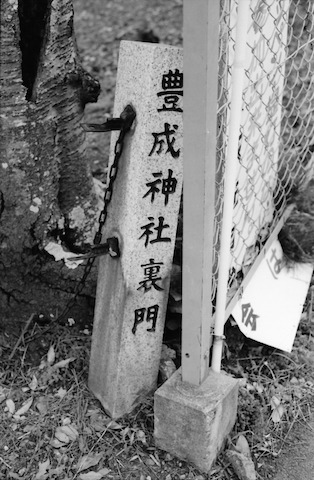 豊成神社裏門